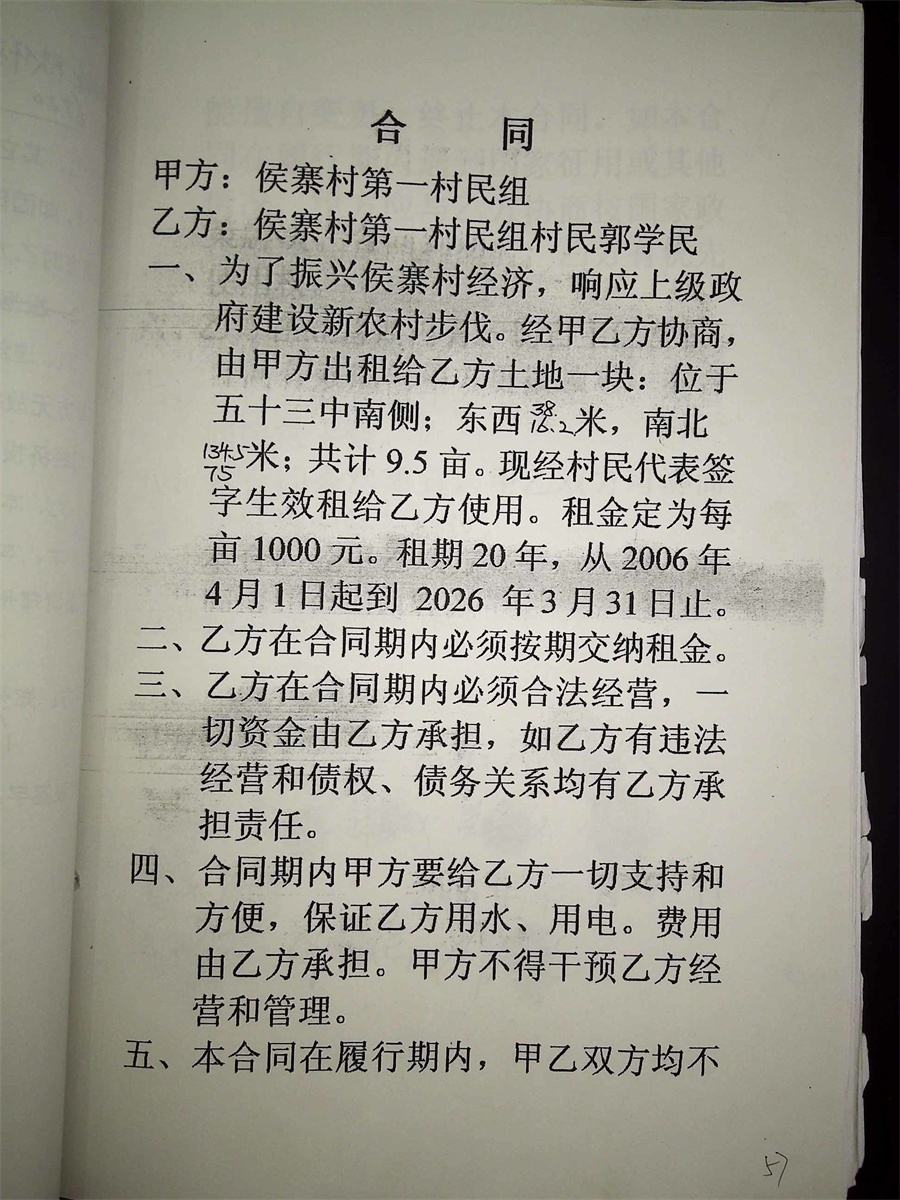 合 同
甲方：侯寨村第一村民组
乙方：侯寨村第一村民组村民郭学民
一、为了振兴侯寨村经济，响应上级政
府建设新农村步伐。经甲乙方协商，
由甲方出租给乙方土地一块：位于
五十三中南侧；东西 38 16.2 米，南北
134.5 75 米；共计 9.5 亩。现经村民代表签
字生效租给乙方使用。租金定为每
亩 1000 元。租期 20 年，从 2006 年
4 月 1 日起到 2026 年 3 月 31 日止。
二、乙方在合同期内必须按期交纳租金。
三、乙方在合同期内必须合法经营，一
切资金由乙方承担，如乙方有违法
经营和债权、债务关系均有乙方承
担责任。
四、合同期内甲方要给乙方一切支持和
方便，保证乙方用水、用电。费用
由乙方承担。甲方不得干预乙方经
营和管理。
五、本合同在履行期内，甲乙双方均不
57